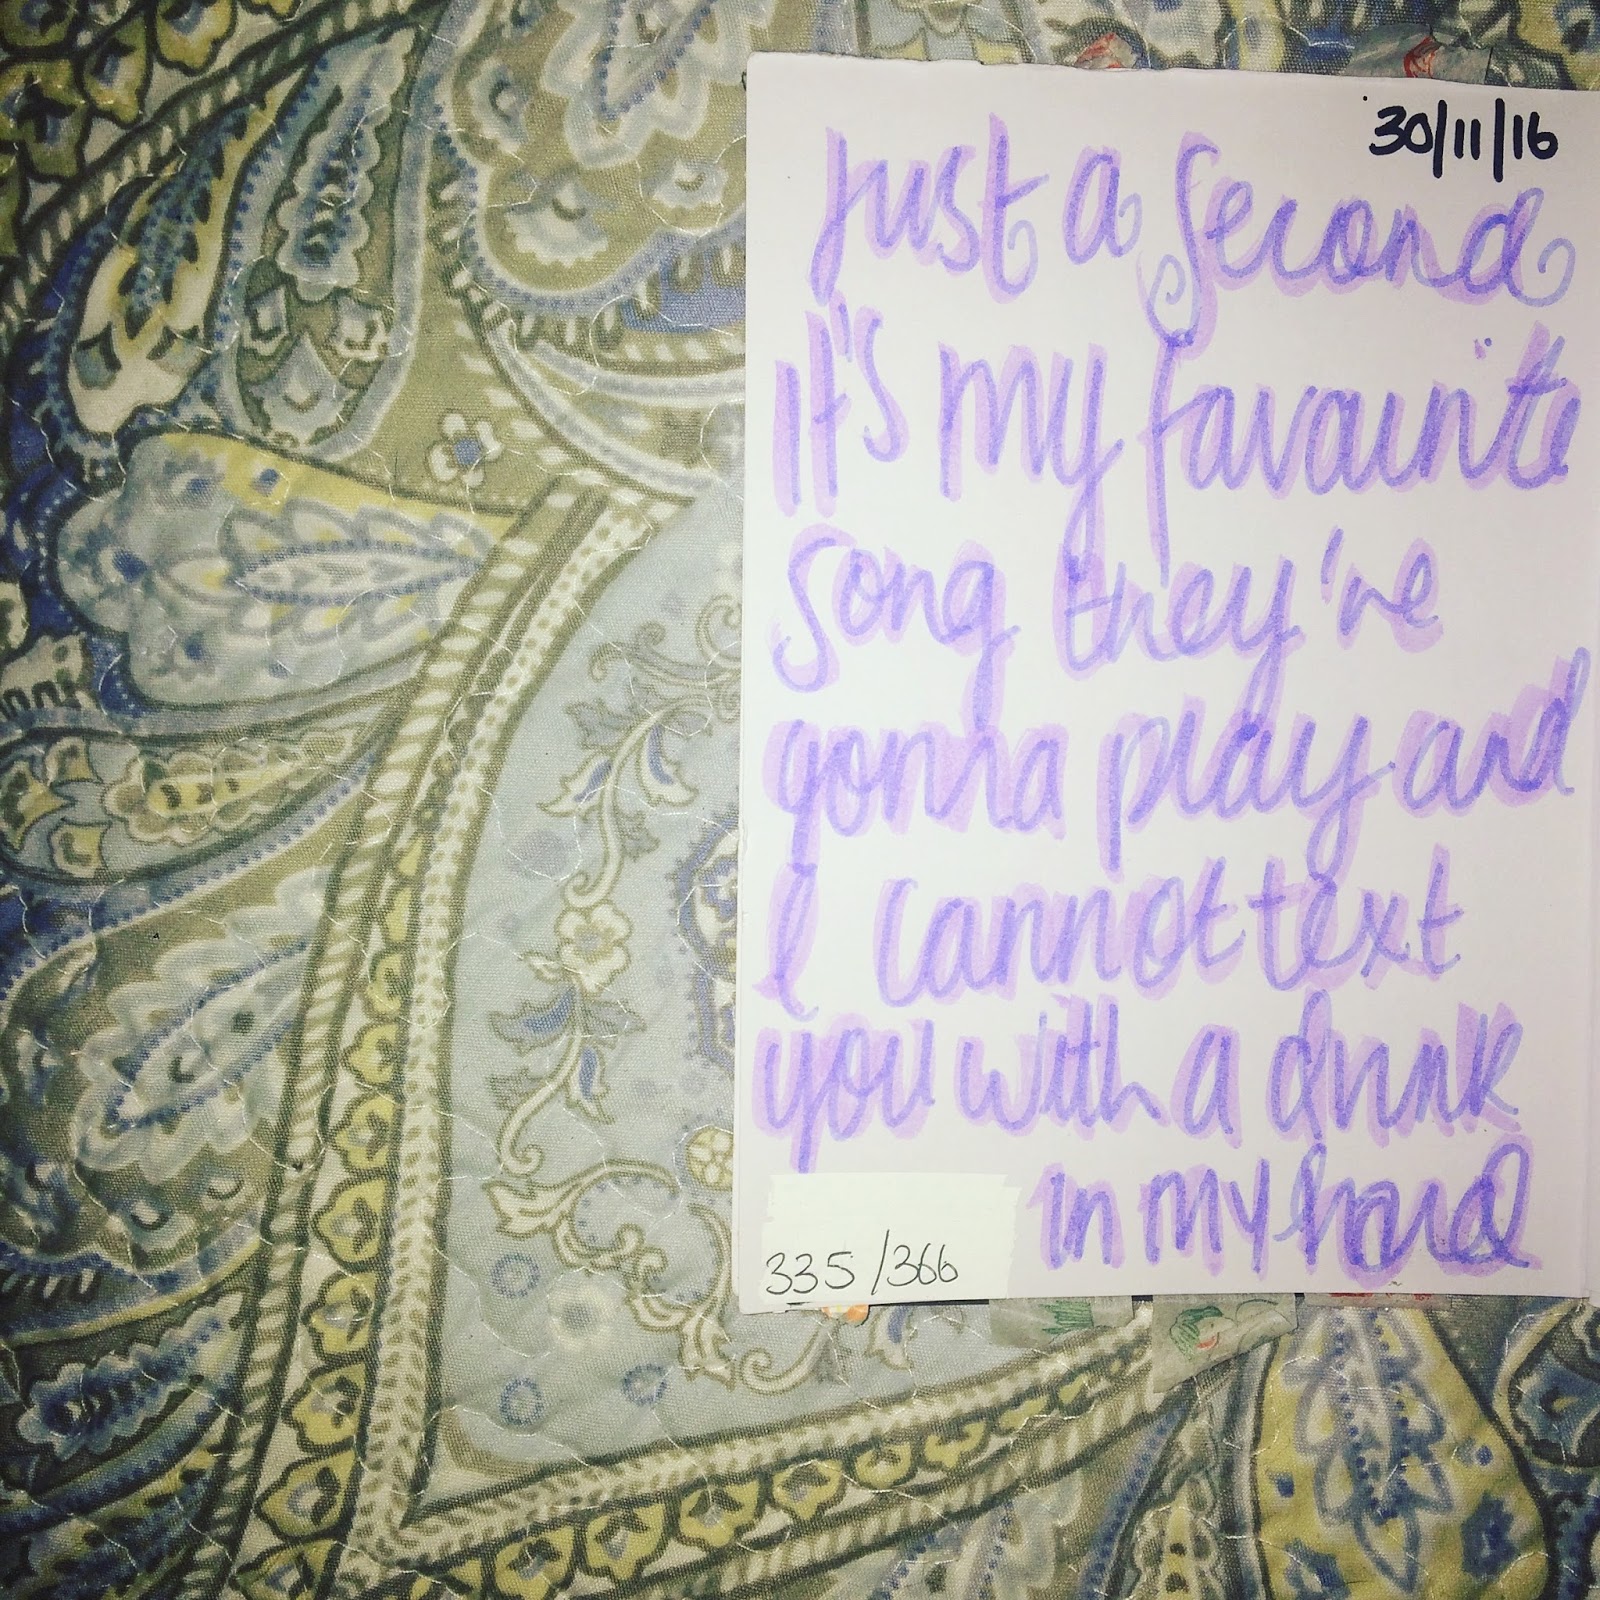 30/11/16
Just a second
It's my favourite
song they're
gonna play and
I cannot text
you with a drink
in my hand
335/366